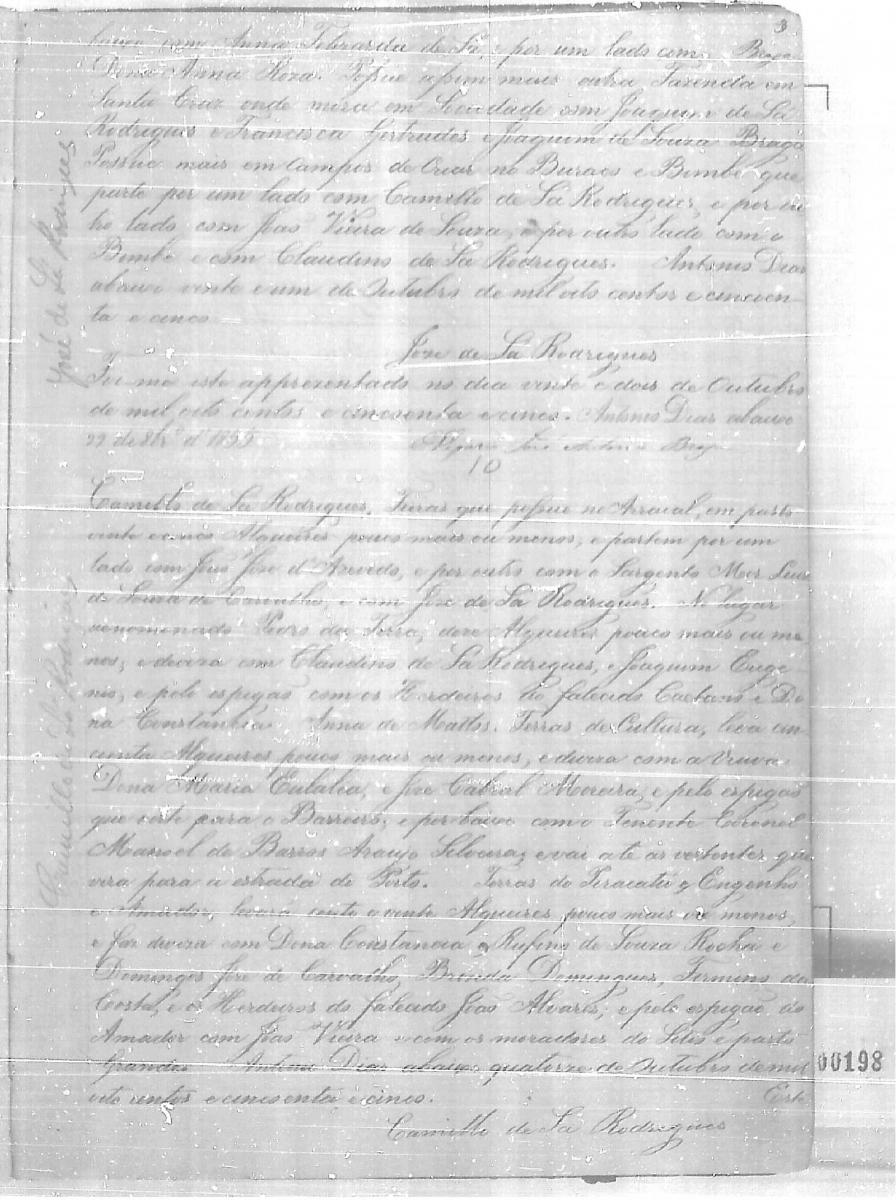 3
com Anna Felizarda de Sá, e por um lado com Braga
Dona Anna Roza. Possue assim mais outra Fazenda em
Santa Cruz onde mora em Sociedade com Joaquim de Sá
Rodrigues e Francisca Gertrudes e Joaquim de Souza Braga
Possue mais em Campos de Criar no Buraco e Bimbé que
parte por um lado com Camillo de Sá Rodrigues, e por ou
tro lado com João Vieira de Souza, e por outro lado com o
Bimbé e com Claudino de Sá Rodrigues. Antonio Dias
abaixo vinte e um de Outubro de mil oito centos e cincoen-
ta e cinco
José de Sá Rodrigues
José de Sá Rodrigues
Foi-me este apprezentado no dia vinte e dois de Outubro
de mil oito centos e cincoenta e cinco. Antonio Dias abaixo
22 de 8br.º d' 1855 José Antonio Braga
10
Camillo de Sá Rodrigues
Camillo de Sá Rodrigues. Terras que possue no Arraial, em parte
vinte e cinco Alqueires pouco mais ou menos, e partem por um
lado com João José d'Azevedo, e por outro com o Sargento Mor Luis
de Souza de Carvalho, e com José de Sá Rodrigues. No lugar
denominado Pedro da Terra, doze Alqueires pouco mais ou me
nos, e deviza com Claudino de Sá Rodrigues, e Joaquim Euge
nio, e pelo espigão com os Herdeiros do falecido Caetano e Do
na Constancia Anna de Mattos. Terras de Cultura, leva cin
coenta Alqueires pouco mais ou menos, e deviza com a Viuva
Dona Maria Eulalia, e José Cabral Moreira, e pelo espigão
que verte para o Barreiro, e por baixo com o Tenente Coronel
Manoel de Barros Araujo Silveira, e vai até as vertentes que
vira para a estrada do Porto. Terras do e Engenho
e Amador, levará cento e vinte Alqueires pouco mais ou menos,
e faz deviza com Dona Constancia e Rufino de Souza Rocha e
Domingos José de Carvalho, Domingues, Firmino da
Costa, e os Herdeiros do falecido João Alvares, e pelo espigão do
Amador com João Vieira e com os moradores do e parte
Grandes Antonio Dias abaixo quatorze de Outubro de mil
oito centos e cincoenta e cinco. Este
Camillo de Sá Rodrigues
00198